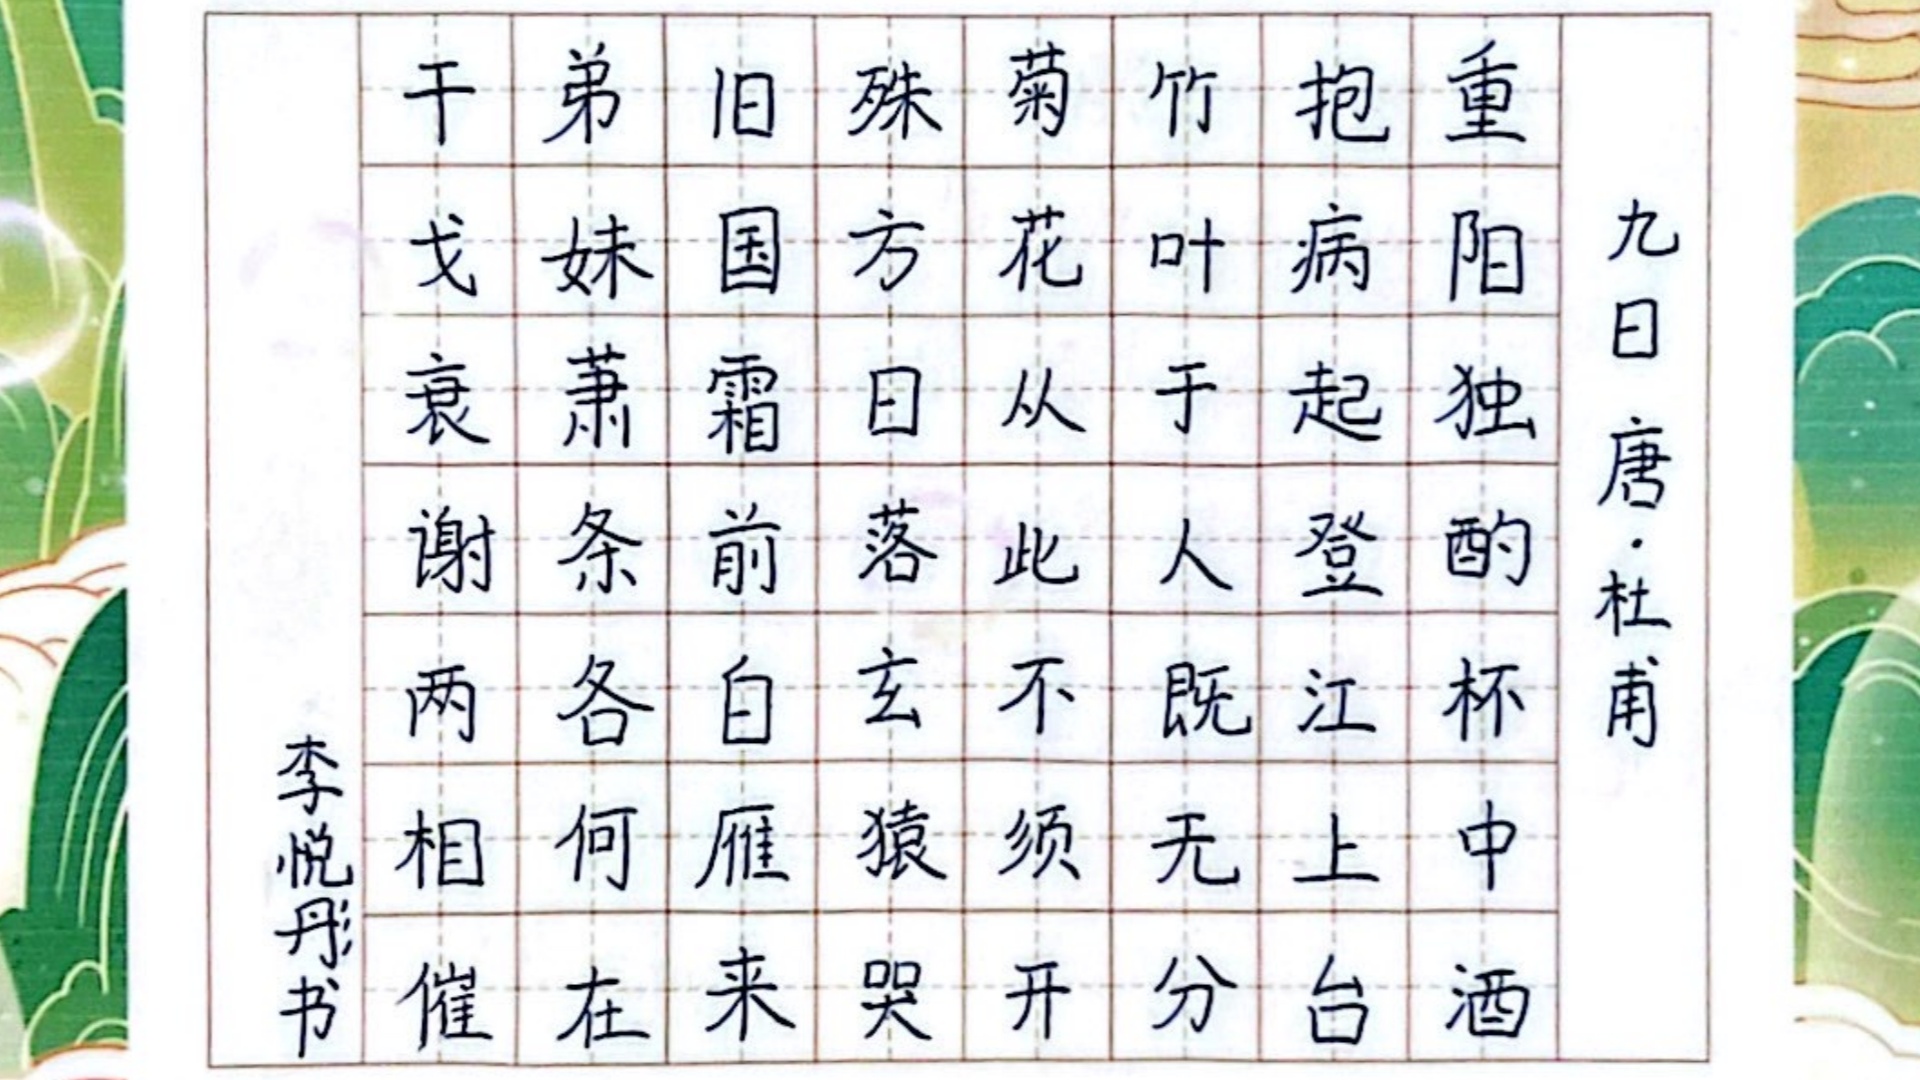 九日 唐·杜甫
重阳独酌杯中酒
抱病起登江上台
竹叶于人既无分
菊花从此不须开
殊方日落玄猿哭
旧国霜前白雁来
弟妹萧条各何在
干戈衰谢两相催
李悦彤书